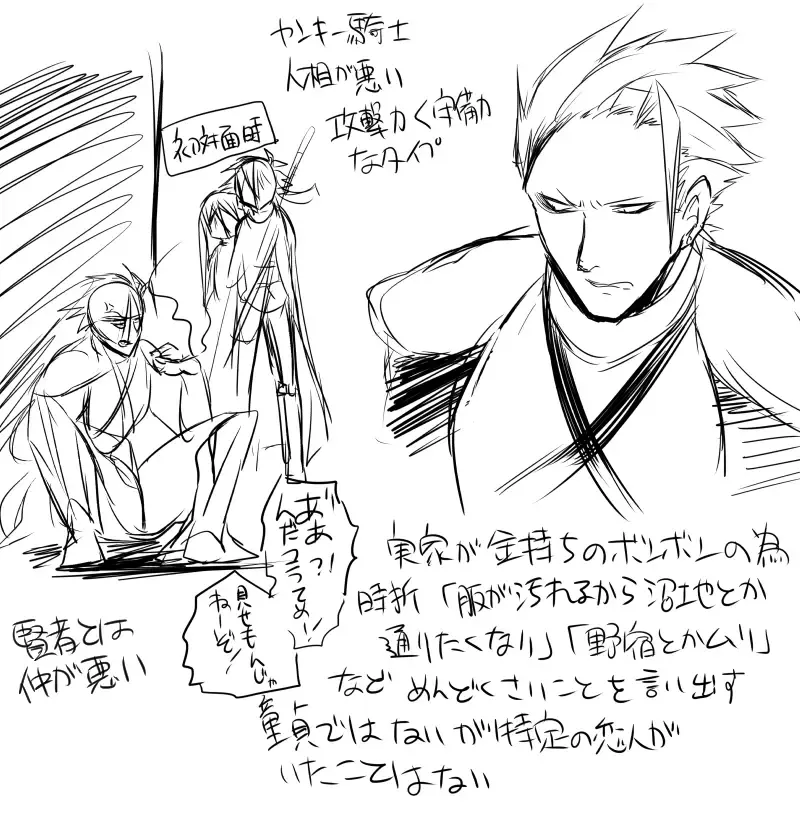 ヤンキー騎士
人相が悪い
攻撃力<守備力
なタイプ
初対面時
あ゛あっ?!
んだコラてめー!
見せもんじゃ
ねーぞ!
賢者とは
仲が悪い
実家が金持ちのボンボンの為
時折「服が汚れるから沼地とか
通りたくない」「野宿とかムリ」
など めんどくさいことを言い出す
童貞ではないが特定の恋人が
いたことはない